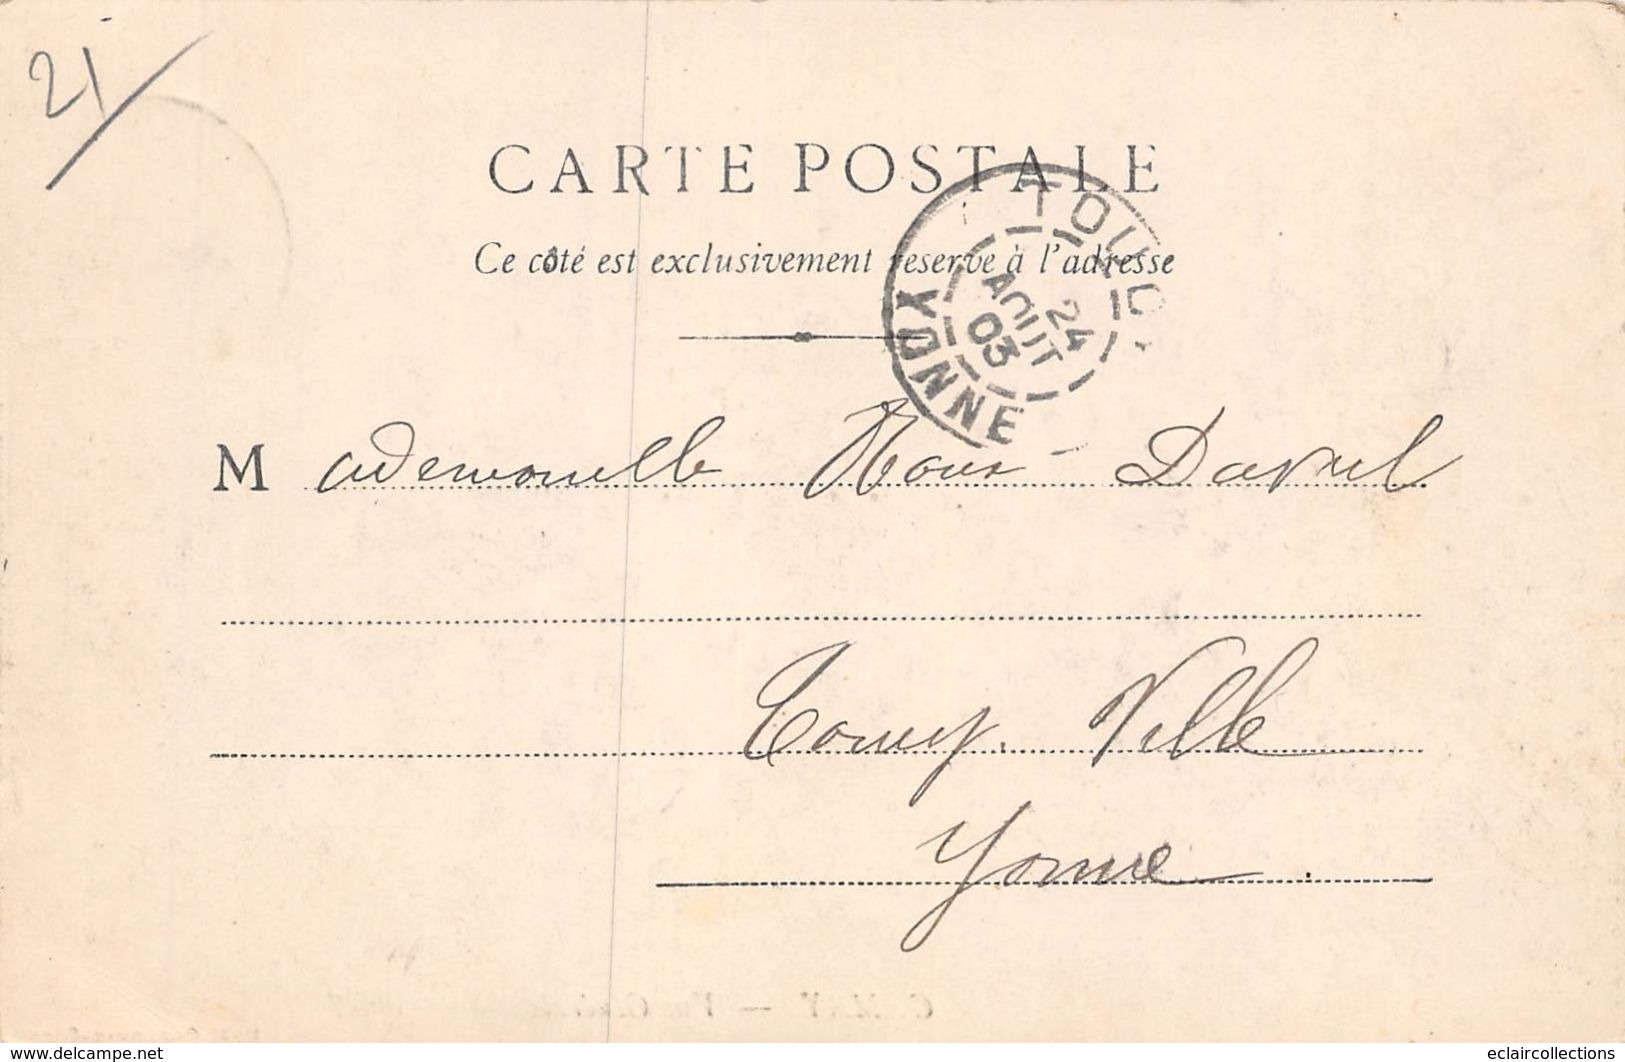 21
CARTE POSTALE
Ce côté est exclusivement réservé à l'adresse
TOUCY
24
AOUT
03
YONNE
Mademoiselle Roux - Darnel
Toucy. Ville
Yonne
www.delcampe.net
eclaircollections